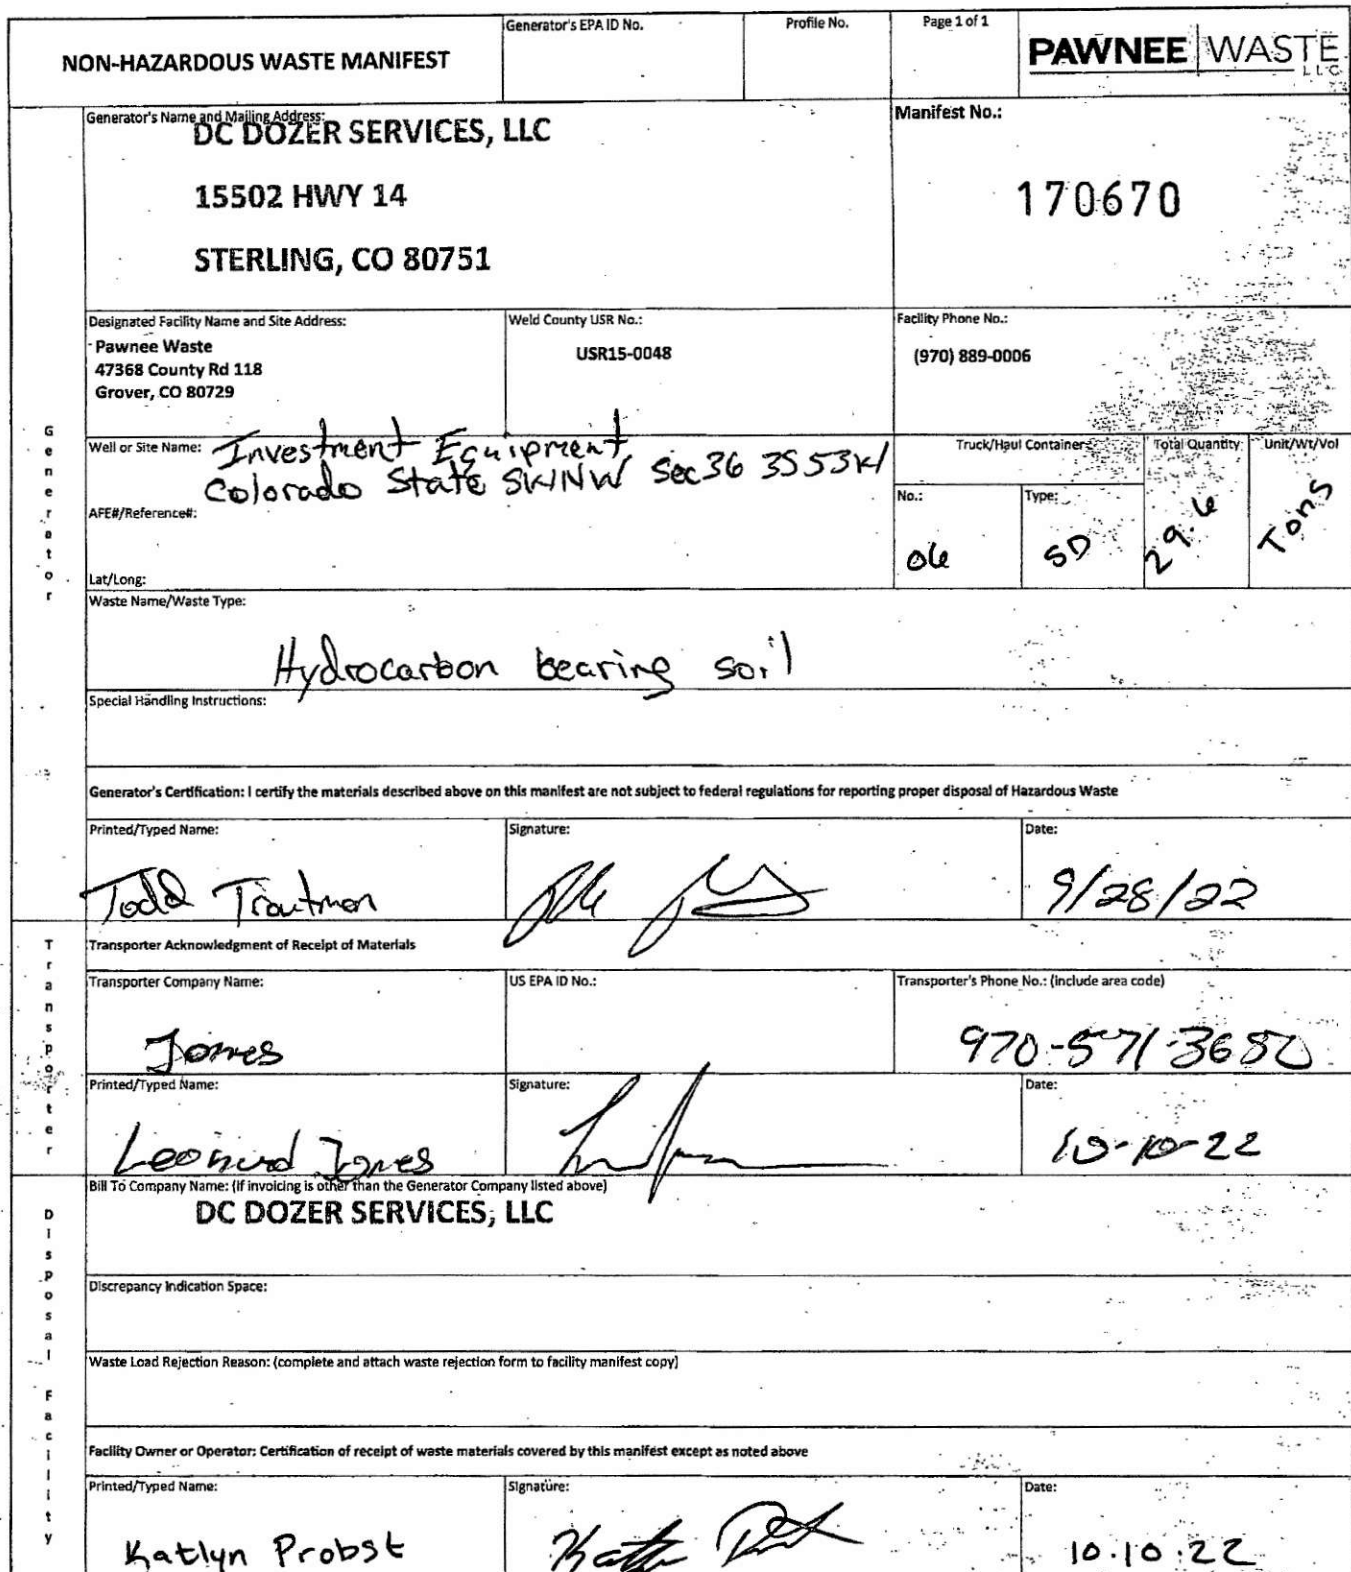 NON-HAZARDOUS WASTE MANIFEST
Generator's EPA ID No.
Profile No.
Page 1 of 1
PAWNEE WASTE
LLC
Generator's Name and Mailing Address:
DC DOZER SERVICES, LLC
15502 HWY 14
STERLING, CO 80751
Manifest No.:
170670
Designated Facility Name and Site Address:
Pawnee Waste
47368 County Rd 118
Grover, CO 80729
Weld County USR No.:
USR15-0048
Facility Phone No.:
(970) 889-0006
Generator
Well or Site Name: Investment Equipment
Colorado State SWNW Sec 36 3S 53W
AFE#/Reference#:
Lat/Long:
Truck/Haul Container
No.:
06
Type:
SD
Total Quantity
29.6
Unit/Wt/Vol
Tons
Waste Name/Waste Type:
Hydrocarbon bearing soil
Special Handling Instructions:
Generator's Certification: I certify the materials described above on this manifest are not subject to federal regulations for reporting proper disposal of Hazardous Waste
Printed/Typed Name:
Todd Troutman
Signature:
Date:
9/28/22
Transporter
Transporter Acknowledgment of Receipt of Materials
Transporter Company Name:
Jones
US EPA ID No.:
Transporter's Phone No.: (include area code)
970-571-3650
Printed/Typed Name:
Leonard Jones
Signature:
Date:
10-10-22
Disposal Facility
Bill To Company Name: (if invoicing is other than the Generator Company listed above)
DC DOZER SERVICES, LLC
Discrepancy Indication Space:
Waste Load Rejection Reason: (complete and attach waste rejection form to facility manifest copy)
Facility Owner or Operator: Certification of receipt of waste materials covered by this manifest except as noted above
Printed/Typed Name:
Katlyn Probst
Signature:
Date:
10.10.22